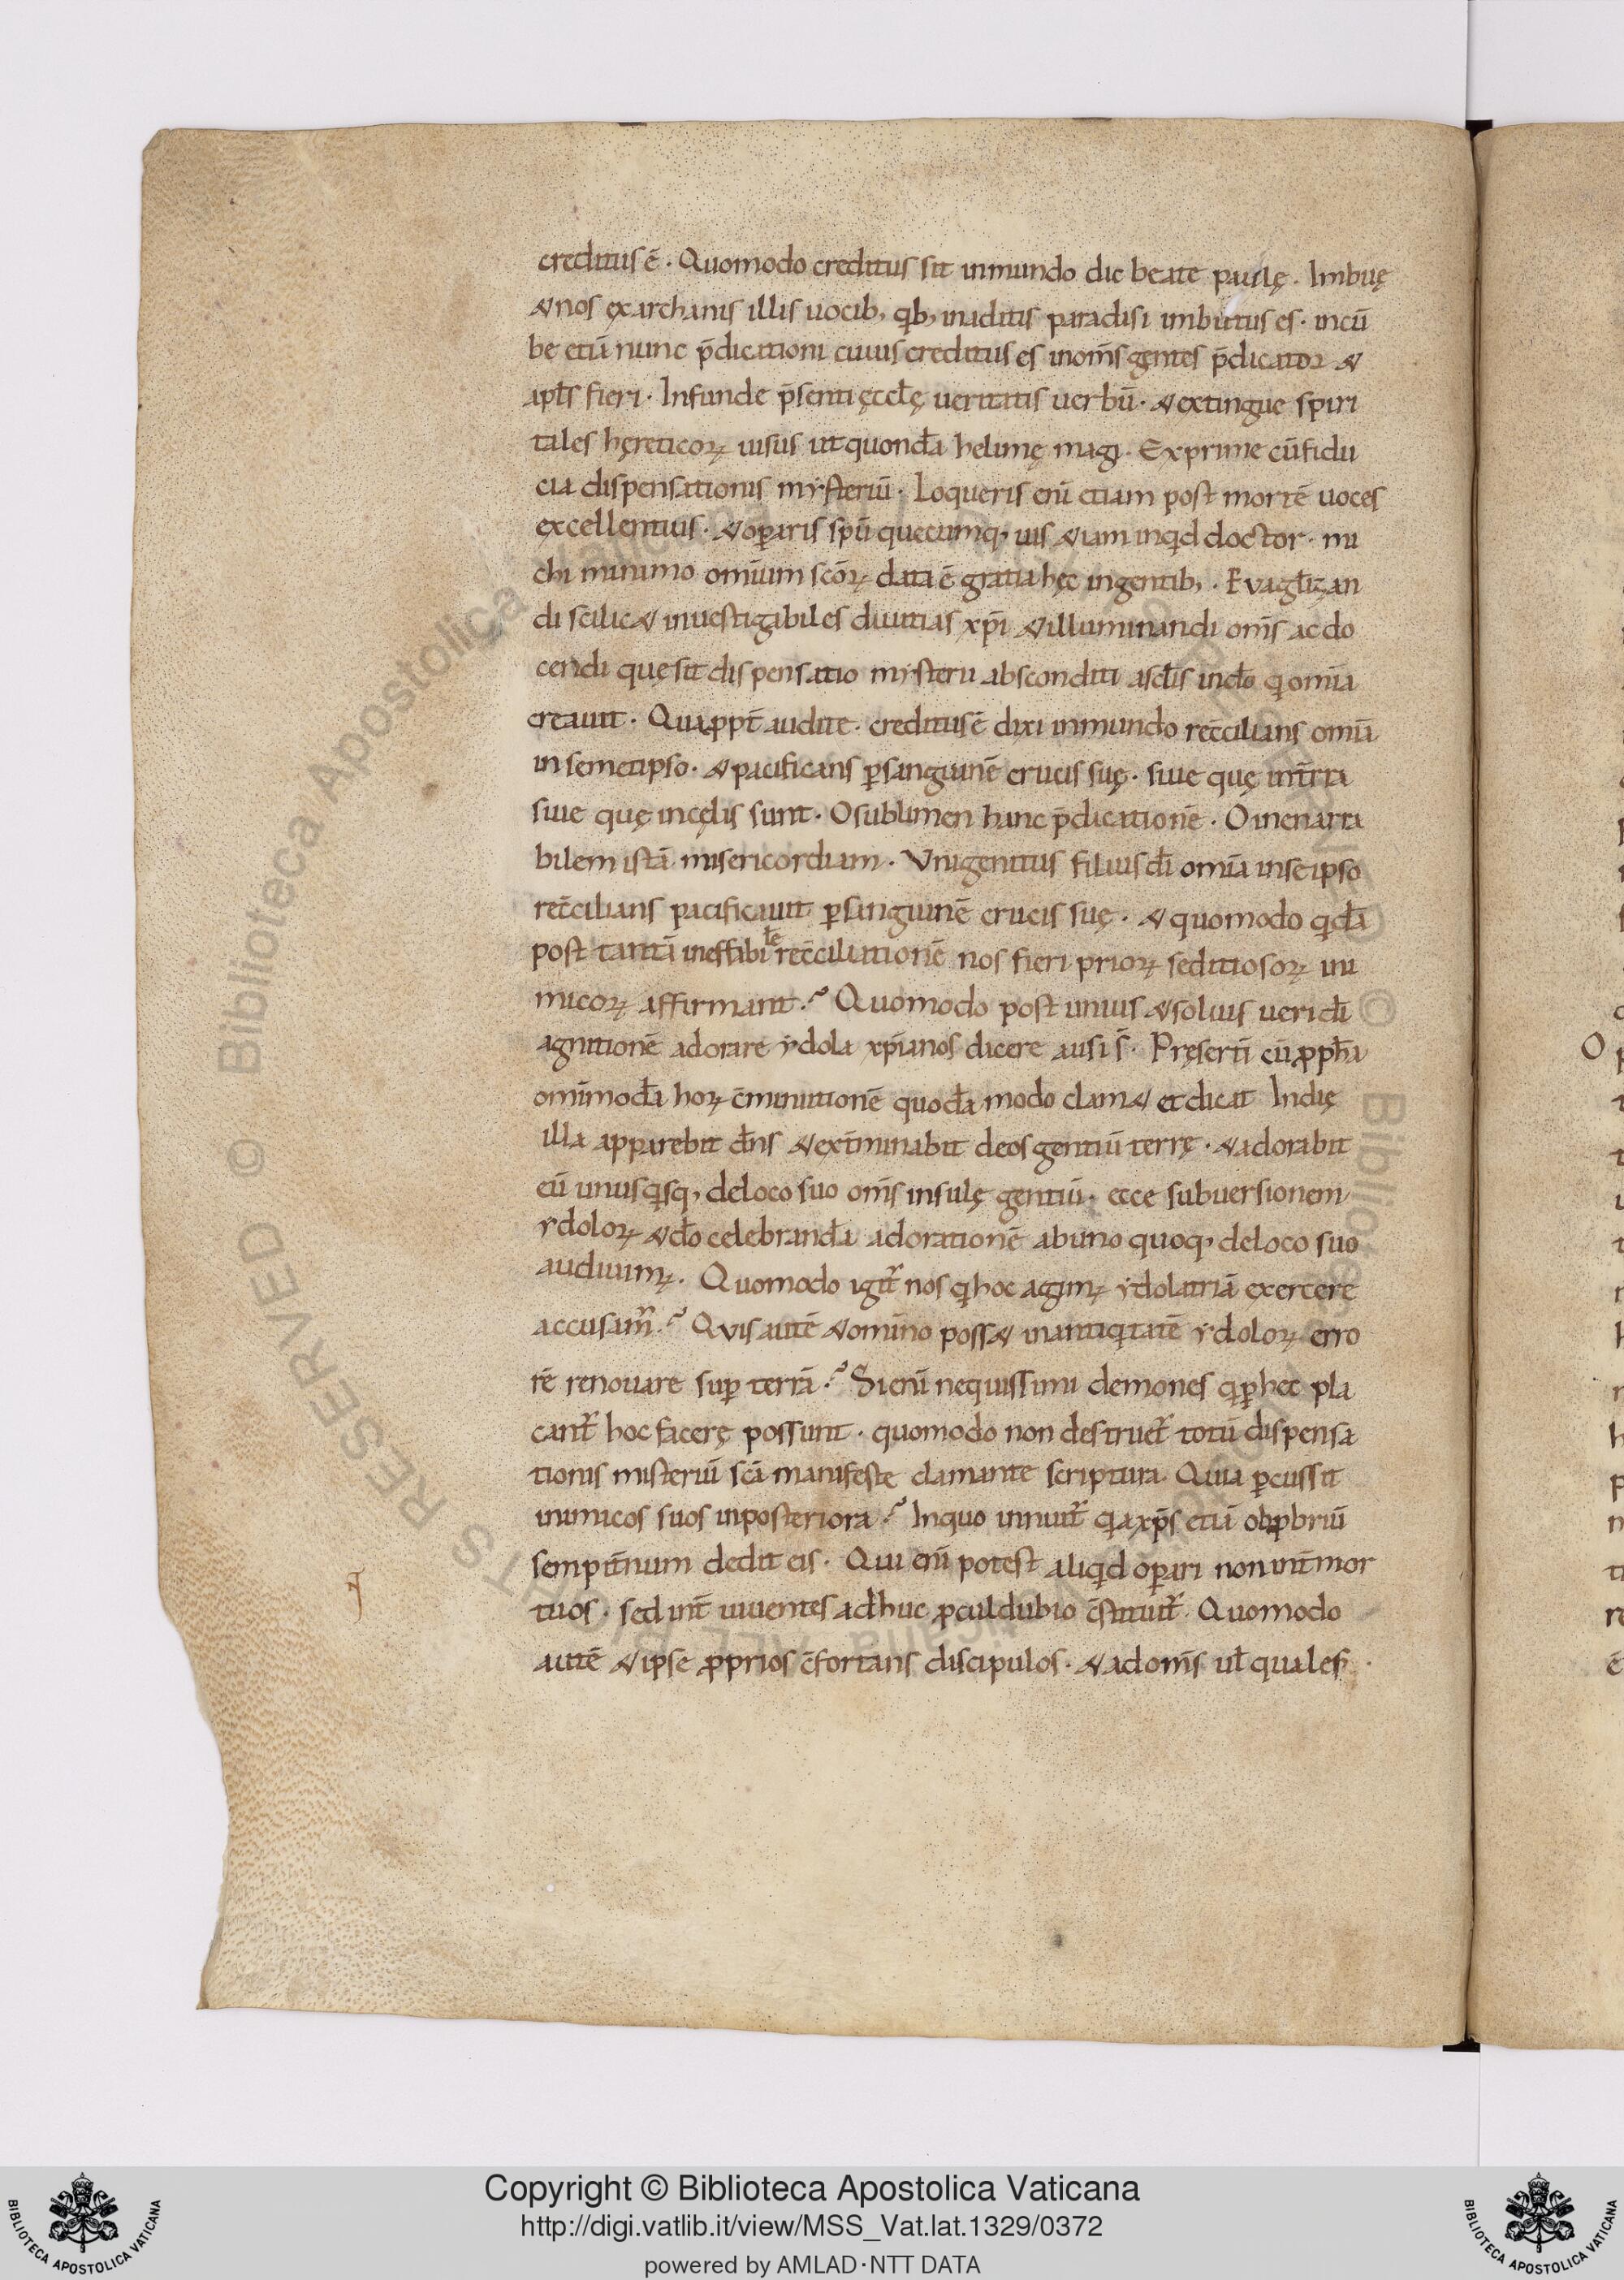 creditus ē · Quomodo creditus sit in mundo dic beate paulę · Imbuę
& nos ex archanis illis uocib; qb; in aditis paradisi imbutus es · incū
be etiā nunc p̄dicationi cuius creditus es in om̄s gentes p̄dicator &
apłs fieri · Infunde p̄senti ęccłę ueritatis uerbū · & extingue spiri
tales hęreticoꝝ uisus ut quondā helimę magi · Exprime cū fidu
cia dispensationis mysteriū · Loqueris eni etiam post mortē uoces
excellentius · & oꝑaris spū quecumq; uis & iam inqd doctor · mi
chi minimo omīum scōꝝ data ē gratia hęc in gentib; · Evaglizan
di scilic& inuestigabiles diuitias xp̄i & illuminandi om̄s ac do
cendi quę sit dispensatio mysterii absconditi a scłis in dō q omīa
creauit · Quapp̄t audite · creditus ē dixi in mundo recc̄ilians omīa
in semetipso · & pacificans ꝑ sanguinē crucis suę · siue quę in t̄rra
siue quę in cęlis sunt · O sublimen hanc p̄dicationē · O inenarra
bilem istā misericordiam · Vnigenitus filius dī omīa in se ipso
recc̄ilians pacificauit ꝑ sanguinē crucis suę · & quomodo qdā
post tantā ineffabilē recc̄iliationē nos fieri prioꝝ seditiosoꝝ ini
micoꝝ affirmant ? Quomodo post unius & solius ueri dī
agnitionē adorare ydola xp̄ianos dicere ausi s̄ · Pręserti cū ꝓph̄a
omīmodā hoꝝ c̄minutionē quodā modo clam& et dicat In dię
illa apparebit dn̄s & ext̄minabit deos gentiū terrę · & adorabit
eū unusqsq; de loco suo om̄s insulę gentiū · ecce subuersionem
ydoloꝝ & dō celebrandā adorationē ab uno quoq; de loco suo
audiuimꝝ · Quomodo igit̄ nos q hoc agimꝝ ydolatriā exercere
accusam̄ ? Qvis autē & omīno poss& in antiqtatē ydoloꝝ erro
rē renouare suꝑ terrā ? Si eni nequissimi demones q ꝑ hec pla
cant̄ hoc facerę possunt · quomodo non destruet̄ totū dispensa
tionis misteriū scā manifeste clamante scriptura · Quia ꝑcussit
inimicos suos in posteriora ? In quo innuit̄ qa xp̄s etiā obꝓbriū
sempit̄num dedit eis · Qui eni potest aliqd oꝑari non int̄ mor
tuos · sed int̄ uiuentes adhuc ꝓculdubio c̄stituit̄ · Quomodo
autē & ipse ꝓprios c̄fortans discipulos · & ad om̄s uł quales
Copyright © Biblioteca Apostolica Vaticana
http://digi.vatlib.it/view/MSS_Vat.lat.1329/0372
powered by AMLAD·NTT DATA